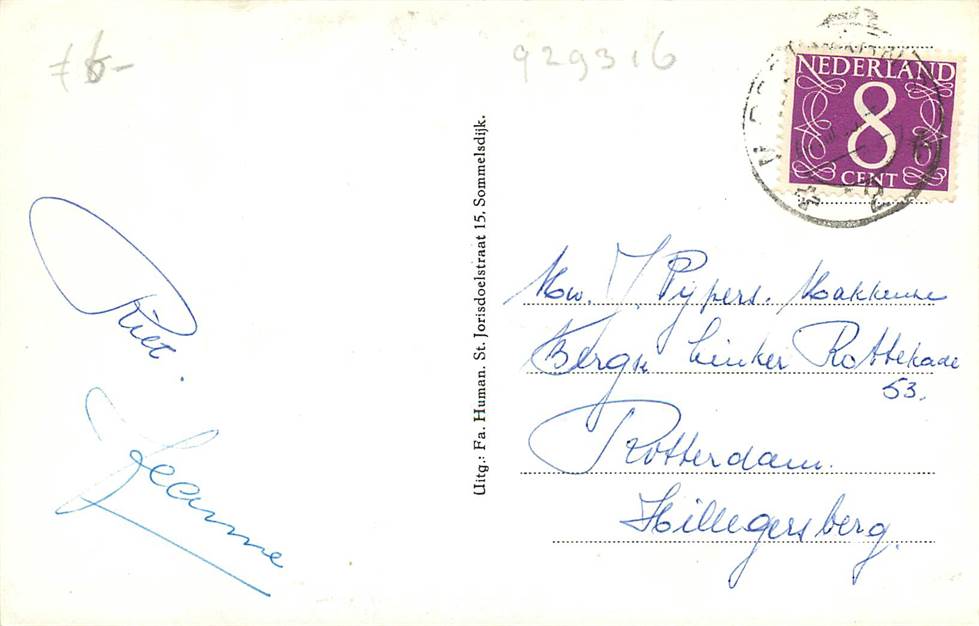 f 6-
929316
NEDERLAND
8
CENT
Piet.
Jeanne
Uitg.: Fa. Human. St. Jorisdoelstraat 15, Sommelsdijk.
Mw. J. Pijpers.
Bergse Linker Rottekade
53.
Rotterdam.
Hillegersberg.